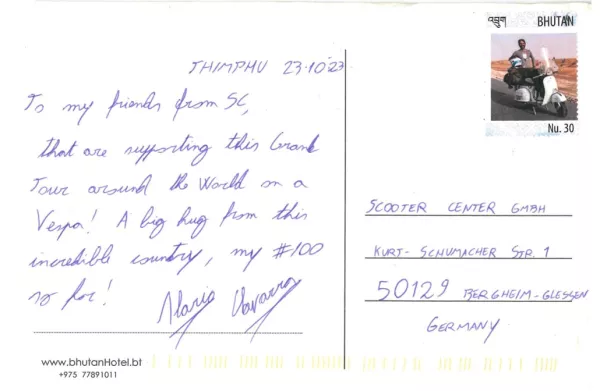 འབྲུག BHUTAN
Nu. 30
THIMPHU 23.10.23
To my friends from SC,
that are supporting this Grand
Tour around the World on a
Vespa! A big hug from this
incredible country, my #100
so far!
Ilario Lavarra
SCOOTER CENTER GMBH
KURT-SCHUMACHER STR. 1
50129 BERGHEIM-GLESSEN
GERMANY
www.bhutanHotel.bt
+975 77891011